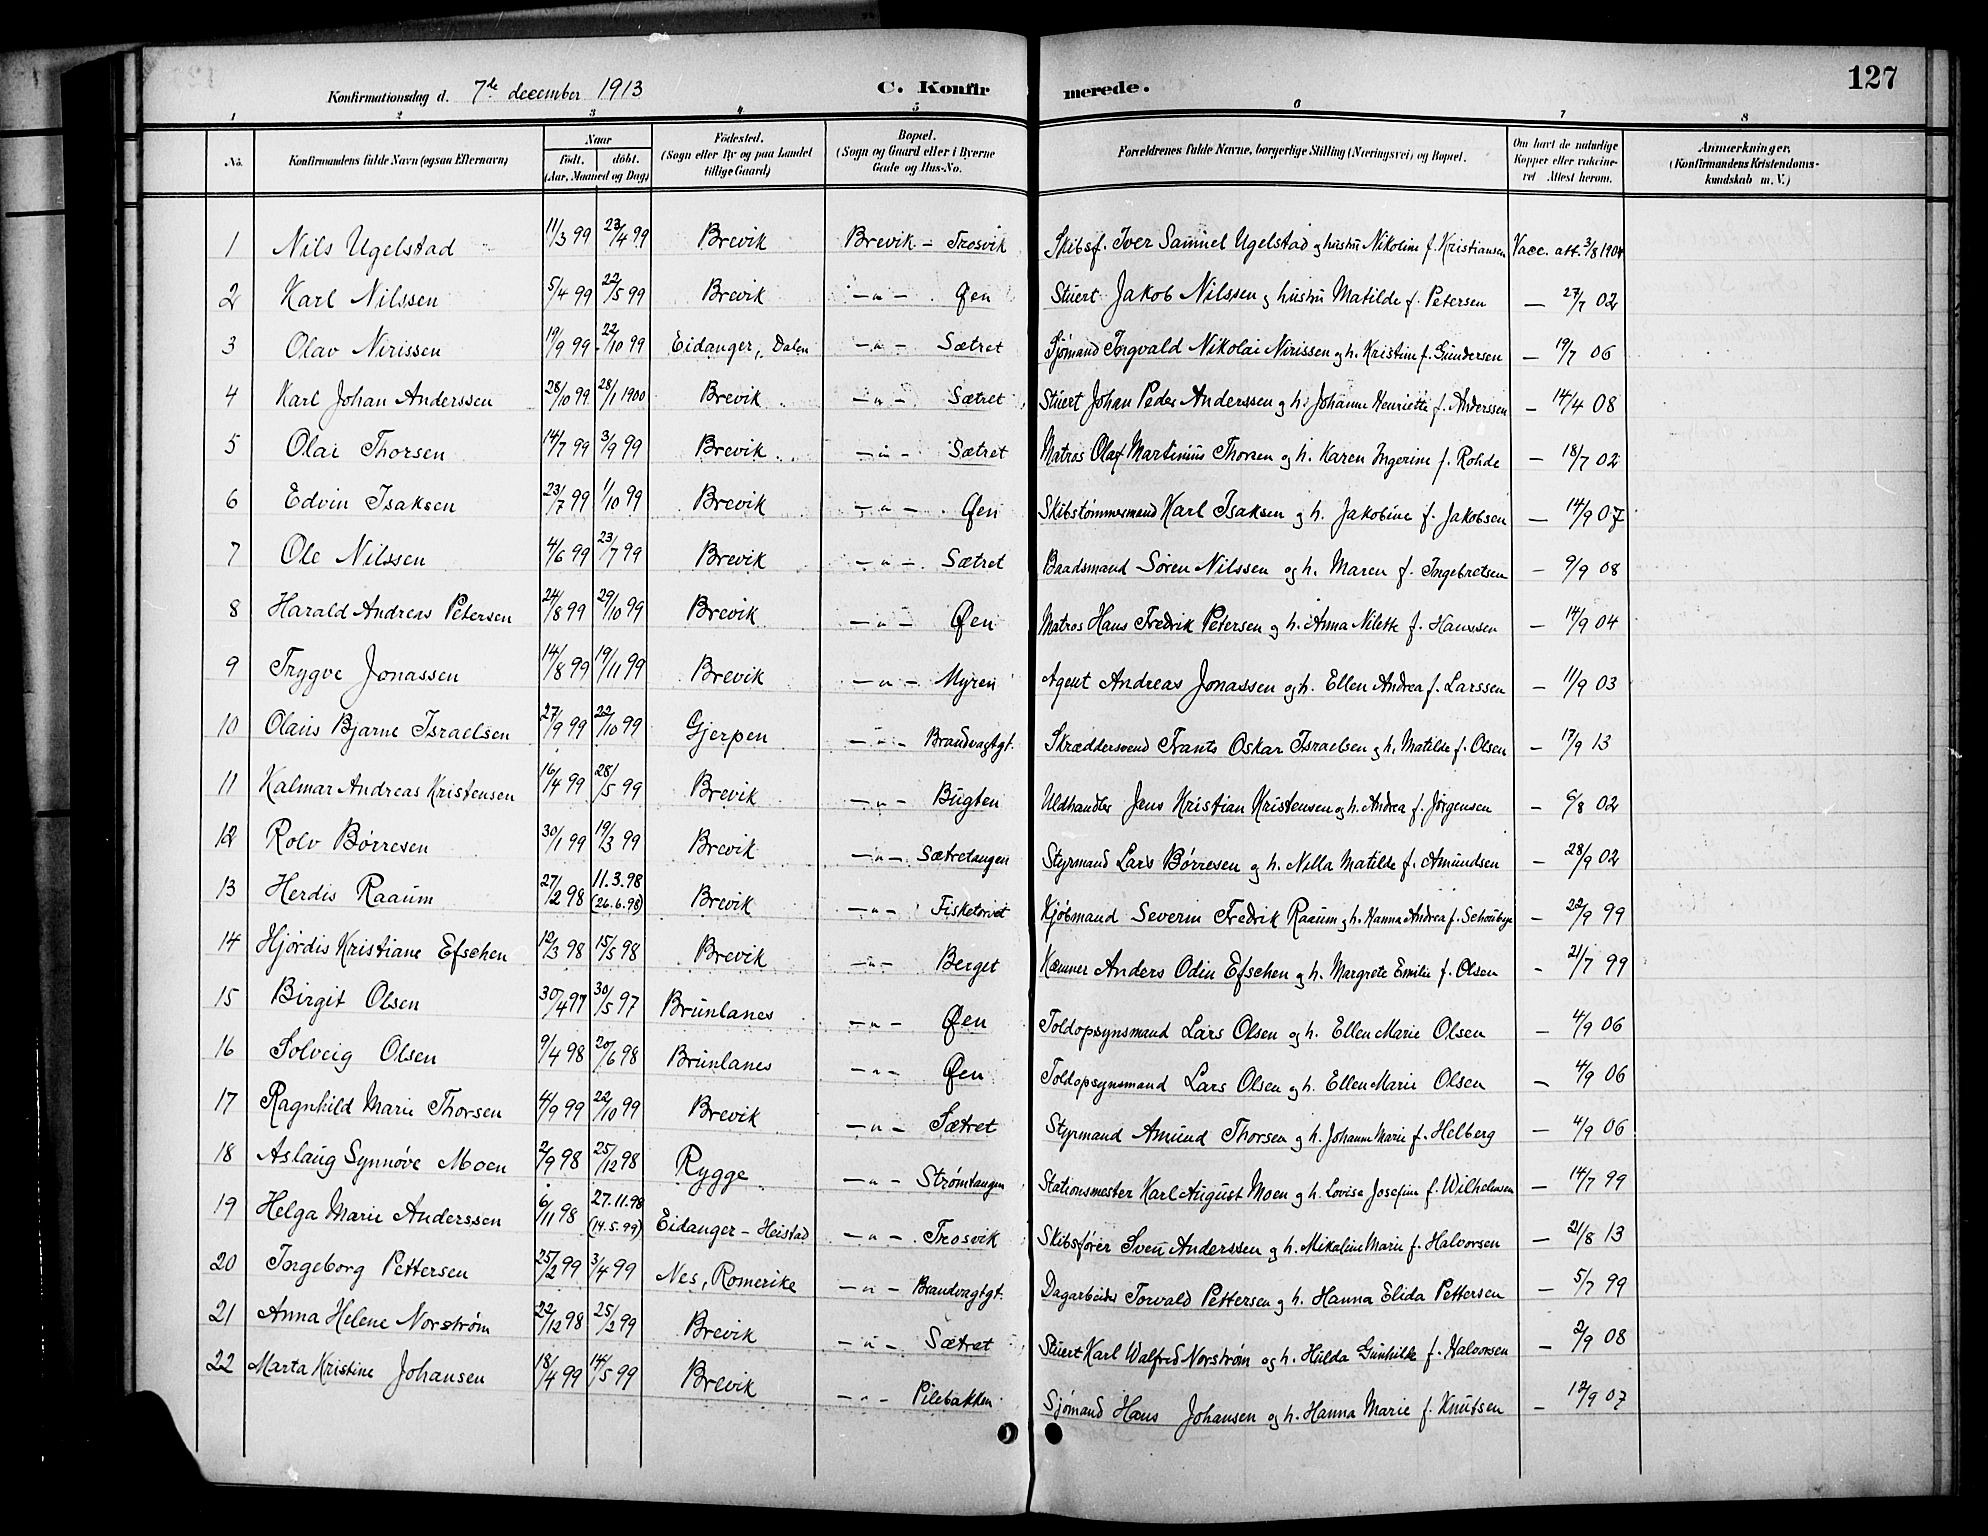 127
Konfirmationsdag d. 7de december 1913 C. Konfirmerede.
1 2 3 4 5 6 7 8
No. Konfirmandens fulde Navn (ogsaa Efternavn) Naar født. døbt. (Aar, Maaned og Dag) Fødested. (Sogn eller By og paa Landet tillige Gaard) Bopæl. (Sogn og Gaard eller i Byerne Gade og Hus-No. Forældrenes fulde Navne, borgerlige Stilling (Næringsvei) og Bopæl. Om havt de naturlige Kopper eller vakcineret Attest herom. Anmærkninger. (Konfirmandens Kristendomskundskab m. V.)
1 Nils Ugelstad 11/3 99 23/4 99 Brevik Brevik - Trosvik Skibsf. Iver Samuel Ugelstad og hustru Nikoline f. Kristiansen Vacc. att. 3/8 1904
2 Karl Nilssen 5/4 99 22/5 99 Brevik —„— Øen Stuert Jakob Nilssen og hustru Matilde f. Petersen — 27/7 02
3 Olav Nirissen 19/9 99 22/10 99 Eidanger, Dalen —„— Sætret Sjømand Ingvald Nikolai Nirissen og h. Kristine f. Gundersen — 19/7 06
4 Karl Johan Anderssen 28/10 99 28/1 1900 Brevik —„— Sætret Stuert Johan Peder Anderssen og h. Johanne Henriette f. Anderssen — 14/4 08
5 Olai Thorsen 14/7 99 3/9 99 Brevik —„— Sætret Matros Olaf Martinius Thorsen og h. Karen Ingerine f. Rohde — 18/7 02
6 Edvin Isaksen 23/7 99 1/10 99 Brevik —„— Øen Skibstømmermand Karl Isaksen og h. Jakobine f. Jakobsen — 14/9 07
7 Ole Nilssen 4/6 99 23/7 99 Brevik —„— Sætret Baadsmand Søren Nilssen og h. Maren f. Ingebretsen — 9/9 08
8 Harald Andreas Petersen 24/8 99 29/10 99 Brevik —„— Øen Matros Hans Fredrik Petersen og h. Anna Nilette f. Hanssen — 14/9 04
9 Trygve Jonassen 14/8 99 19/11 99 Brevik —„— Myren Agent Andreas Jonassen og h. Ellen Andrea f. Larssen — 11/9 03
10 Olaus Bjarne Israelsen 27/9 99 22/10 99 Gjerpen —„— Brandvagtgt. Skræddersvend Frants Oskar Israelsen og h. Matilde f. Olsen — 17/9 13
11 Kalmar Andreas Kristensen 16/4 99 28/5 99 Brevik —„— Bugten Uldhandler Jens Kristian Kristensen og h. Andrea f. Jørgensen — 6/8 02
12 Rolv Børresen 30/1 99 19/3 99 Brevik —„— Sætretangen Styrmand Lars Børresen og h. Nilla Matilde f. Amundsen — 28/9 02
13 Herdis Raaum 27/2 98 11.3.98 (26.6.98) Brevik —„— Fisketorvet Kjøbmand Severin Fredrik Raaum og h. Hanna Andrea f. Schoubye — 22/9 99
14 Hjørdis Kristiane Efschen 12/3 98 15/5 98 Brevik —„— Berget Kæmner Anders Odin Efschen og h. Margrete Emilie f. Olsen — 21/7 99
15 Birgit Olsen 30/4 97 30/5 97 Brunlanes —„— Øen Toldopsynsmand Lars Olsen og h. Ellen Marie Olsen — 4/9 06
16 Solveig Olsen 9/4 98 20/6 98 Brunlanes —„— Øen Toldopsynsmand Lars Olsen og h. Ellen Marie Olsen — 4/9 06
17 Ragnhild Marie Thorsen 4/9 99 22/10 99 Brevik —„— Sætret Styrmand Amund Thorsen og h. Johanne Marie f. Helberg — 4/9 06
18 Aslaug Synnøve Moen 2/9 98 25/12 98 Rygge —„— Strømtangen Stationsmester Karl August Moen og h. Lovise Josefine f. Wilhelmsen — 14/7 99
19 Helga Marie Anderssen 6/11 98 27.11.98 (14.5.99) Eidanger - Heistad —„— Trosvik Skibsfører Sven Anderssen og h. Mikaline Marie f. Halvorsen — 21/8 13
20 Ingeborg Pettersen 25/2 99 3/4 99 Nes, Romerike —„— Brandvagtgt. Dagarbeider Torvald Pettersen og h. Hanna Elida Pettersen — 5/7 99
21 Anna Helene Norstrøm 22/12 98 25/2 99 Brevik —„— Sætret Stuert Karl Walfred Norstrøm og h. Hilda Gunhilde f. Halvorsen — 2/9 08
22 Marta Kristine Johansen 18/4 99 14/5 99 Brevik —„— Pilebakken Sjømand Hans Johansen og h. Hanna Marie f. Knutsen — 12/9 07